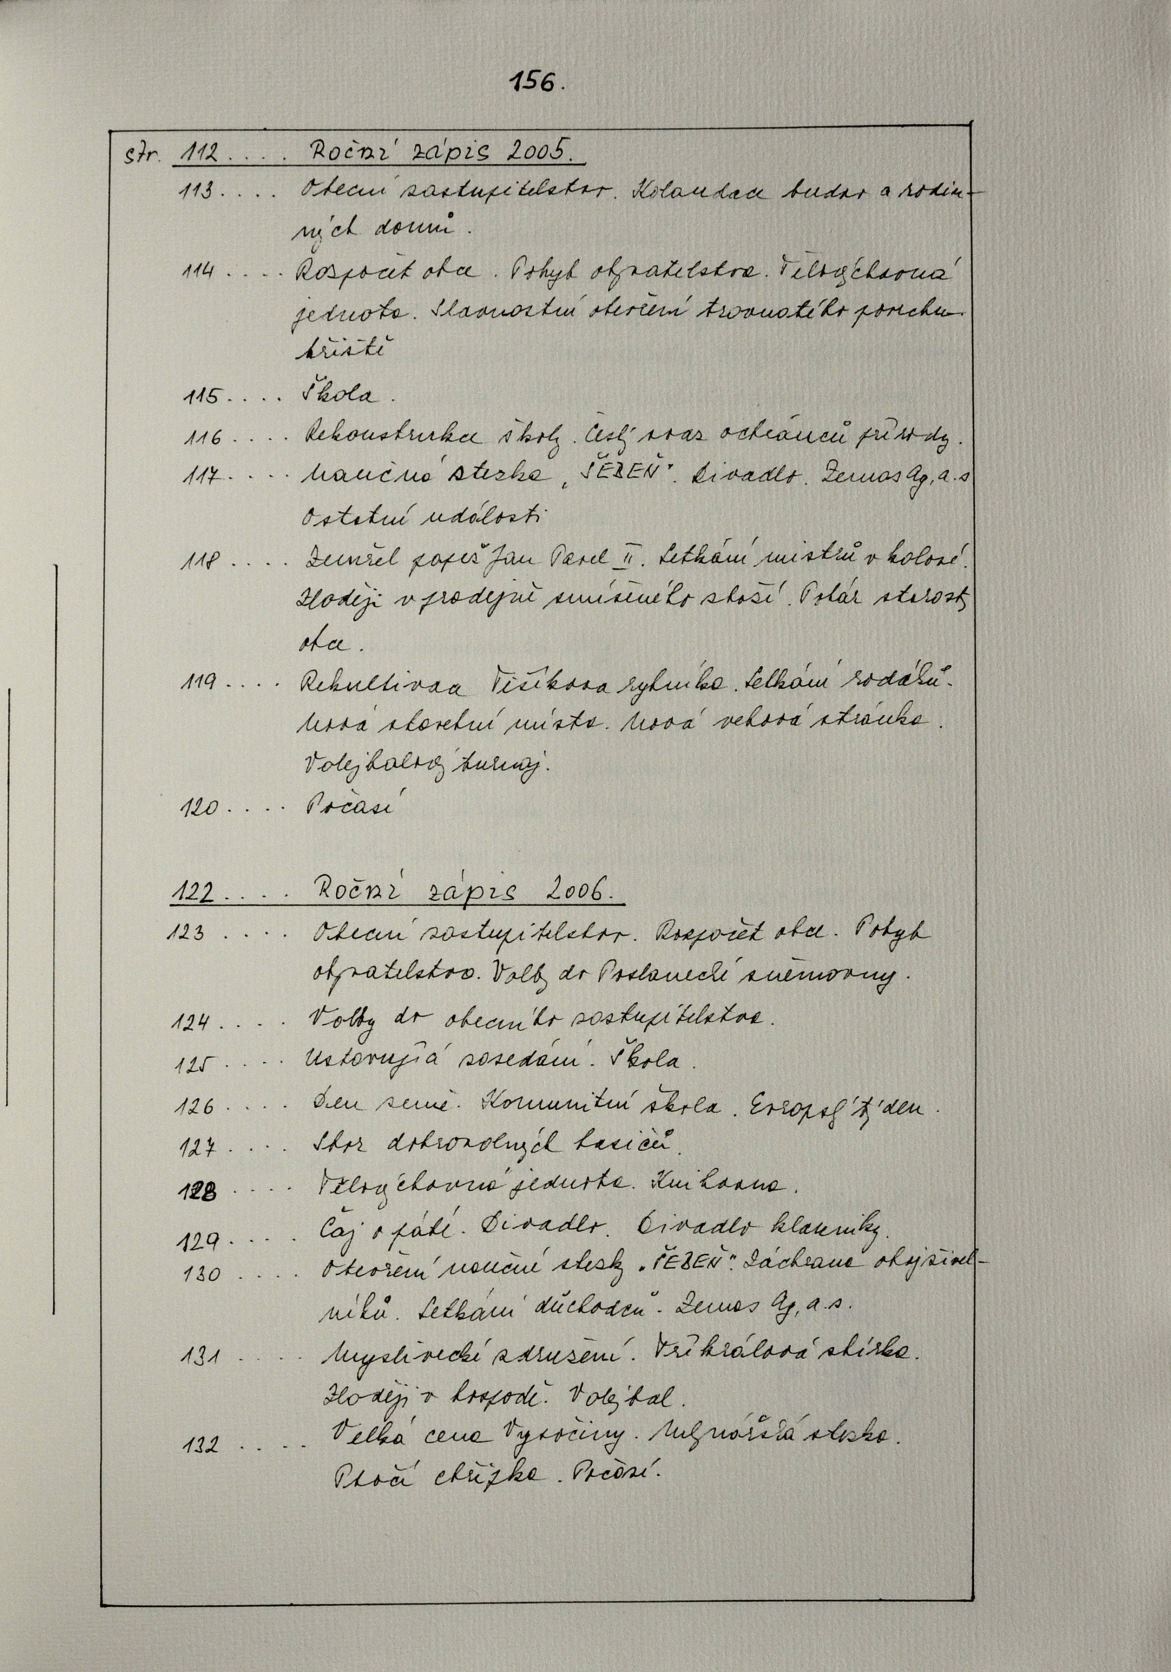 156.
str. 112 .... Roční zápis 2005.
113 .... Obecní zastupitelstvo. Kolaudace budov a rodin-
ných domů.
114 .... Rozpočet obce. Pohyb obyvatelstva. Tělovýchovná
jednota. Slavnostní otevření travnatého povrchu
hřiště
115 .... Škola.
116 .... Rekonstrukce školy. Český svaz ochránců přírody.
117 .... Naučná stezka „ŠEBEŇ". Divadlo. Zemas Ag, a.s
Ostatní události
118 .... Zemřel papež Jan Pavel II. Setkání mistrů v kolové.
Zloději v prodejně smíšeného zboží. Požár starosty
obce.
119 .... Rekultivace Tišíkova rybníka. Setkání rodáků.
Nová stavební místa. Nová webová stránka.
Volejbalový turnaj.
120 .... Počasí
122 .... Roční zápis 2006.
123 .... Obecní zastupitelstvo. Rozpočet obce. Pohyb
obyvatelstva. Volby do Poslanecké sněmovny.
124 .... Volby do obecního zastupitelstva.
125 .... Ustavující zasedání. Škola.
126 .... Den země. Komunitní škola. Evropský týden.
127 .... Sbor dobrovolných hasičů.
128 .... Tělovýchovná jednota. Knihovna.
129 .... Čaj o páté. Divadlo. Divadlo Klauniky.
130 .... Otevření naučné stezky „ŠEBEŇ". Záchrana obojživel-
níků. Setkání důchodců. Zemas Ag, a.s.
131 .... Myslivecké sdružení. Tříkrálová sbírka.
Zloději v hospodě. Volejbal.
132 .... Velká cena Vysočiny. Mlynářská stezka.
Ptačí chřipka. Počasí.